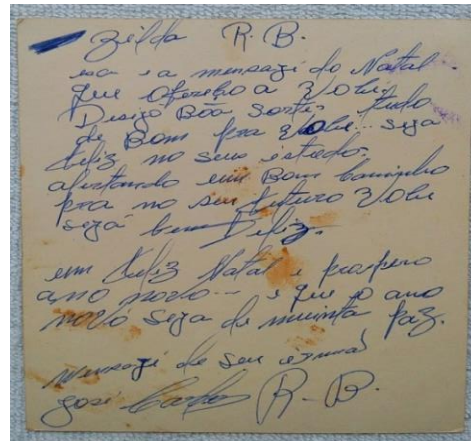 Zilda R.B.
esa e a mensagi do Natal.
que ofereço a Vose.
Desijo Bôa Sorte, tudo
de Bom pra Vose... seja
feliz no seu istudo.
em Bom Caminho
pra no seu futuro Vose
sejá bem Filiz.
um Feliz Natal e prospero
ano novo... e que o ano
novo seja de muinta paz.
mensagi de seu
José Carlos R.B.